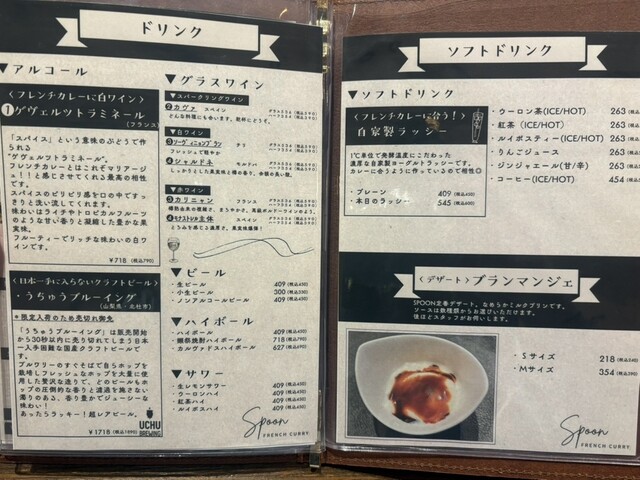 ドリンク
▼アルコール
〈フレンチカレーに白ワイン〉
①ゲヴェルツトラミネール
(フランス)
「スパイス」という意味のぶどうで作られる
"ゲヴェルツトラミネール"。
フレンチカレーとはこれぞマリアージュ！！と感じさせてくれる最高の相性です。
スパイスのピリピリ感を口の中ですっきりと洗い流してくれます。
味わいはライチやトロピカルフルーツのような甘い香りと凝縮した豊かな果実味。
フルーティーでリッチな味わいの白ワインです。
¥718 (税込790)
〈日本一手に入らないクラフトビール〉
・うちゅうブルーイング
(山梨県・北杜市)
＊限定入荷のため売切れ御免
「うちゅうブルーイング」は販売開始から30秒以内に売り切れてしまう日本一入手困難な国産クラフトビールです。
ブルワリーのすぐそばで自らホップを栽培しフレッシュなホップを大量に使用した贅沢な造りで、どのビールもホップの圧倒的な香りと濃過を施さない濁りのある、香り豊かでジューシーな味わい！
あったらラッキー！超レアビール。
¥1718 (税込1890)
UCHU
BREWING
▼グラスワイン
▼スパークリングワイン
①カヴァ スペイン
▼白ワイン
②シャルドネ
しっかりとした果実味と樽の香り、余韻の長い味。
▼ビール
・生ビール 409 (税込450)
・小生ビール 300 (税込330)
・ノンアルコールビール 409 (税込450)
▼ハイボール
・ハイボール 409 (税込450)
・ハイボール 718 (税込790)
・カルヴァドスハイボール 627 (税込690)
▼サワー
・生レモンサワー 409 (税込450)
・ウーロンハイ 409 (税込450)
・紅茶ハイ 409 (税込450)
・ルイボスハイ 409 (税込450)
Spoon
FRENCH CURRY
ソフトドリンク
▼ソフトドリンク
〈フレンチカレーに合う！〉
自家製ラッシー
1℃単位で発酵温度にこだわった
濃厚な自家製ヨーグルトラッシーです。
カレーに合うように作っているので相性◎
・プレーン 409 (税込450)
・本日のラッシー 545 (税込600)
・ウーロン茶(ICE/HOT) 263
・紅茶 (ICE/HOT) 263
・ルイボスティー(ICE/HOT) 263
・りんごジュース 263
・ジンジャエール(甘/辛) 263
・コーヒー(ICE/HOT) 454
〈デザート〉ブランマンジェ
SPOON定番デザート、なめらかミルクプリンです。
ソースは数種類からお選びいただけます。
後ほどスタッフがお伺いします。
・Sサイズ 218
・Mサイズ 354
Spoon
FRENCH CURRY